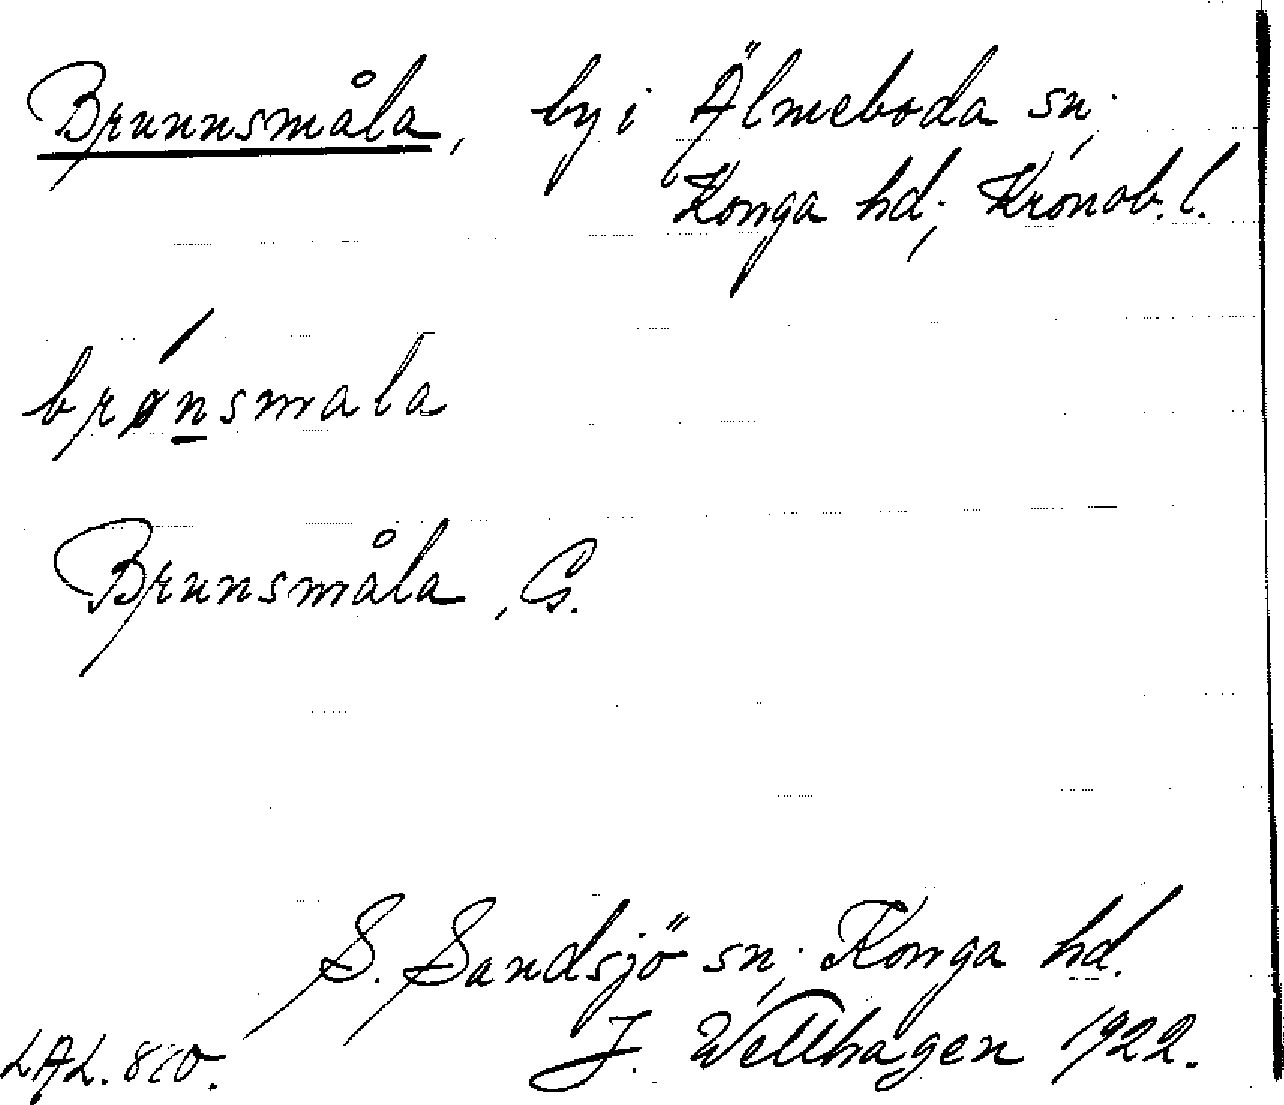 Brunnsmåla, by i Älmeboda sn.,
Konga hd., Kronob. l.
brønsmala
Brunsmåla, G.
S. Sandsjö sn., Konga hd.
LAL. 810. J. Wetthagen 1922.